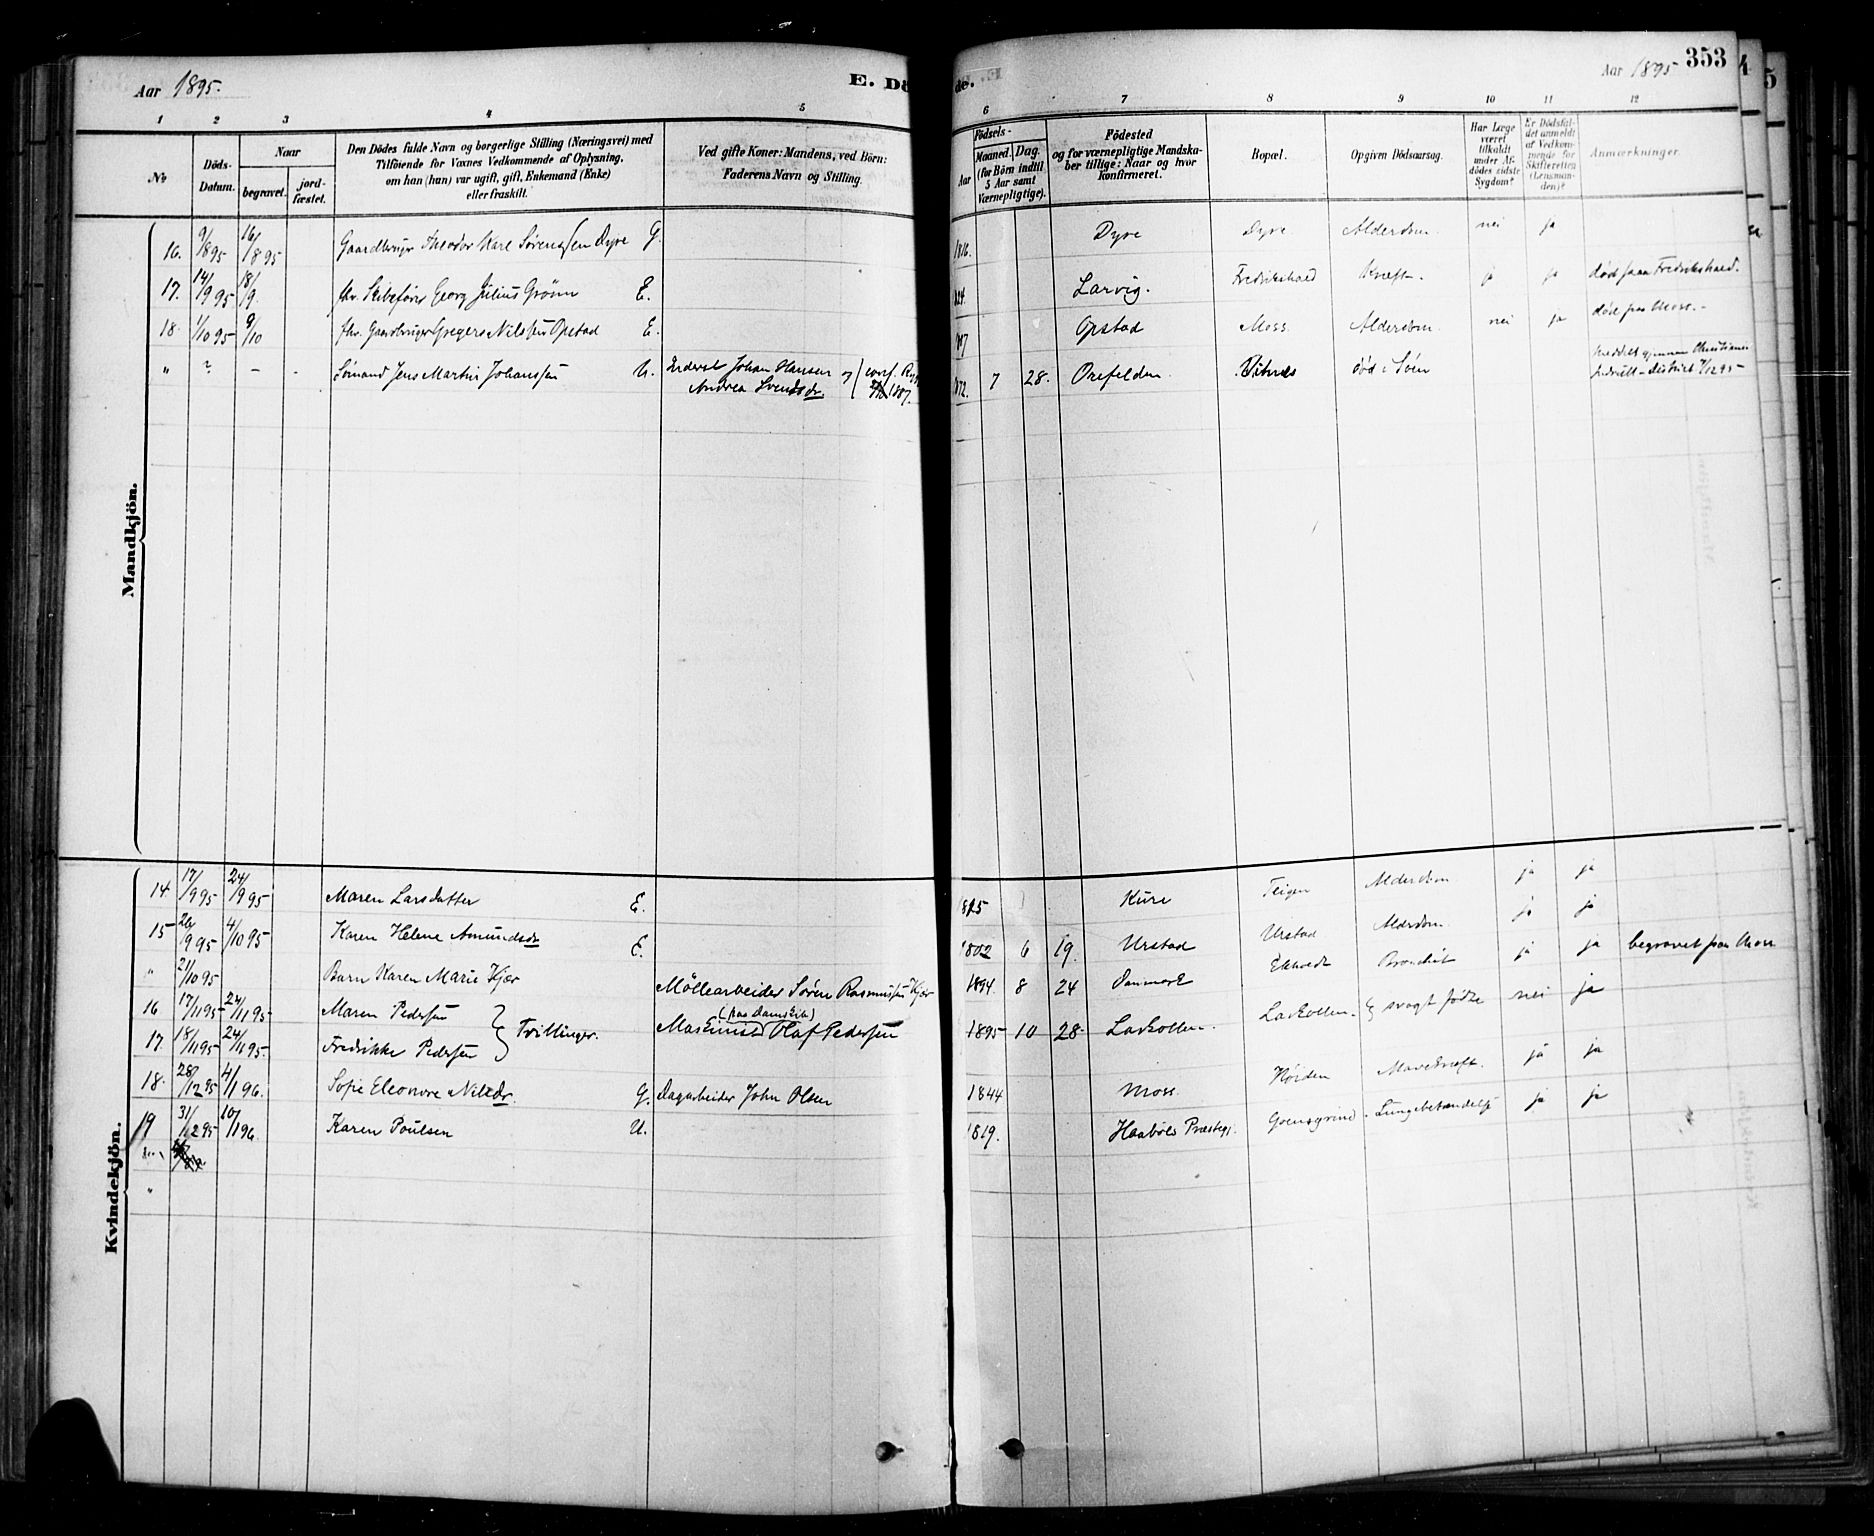 Aar 1895.
E. Dö
de.
Aar 1895
353
1 2 3 4 5 6 7 8 9 10 11 12
No
Döds-Datum.
Naar
begravet.
jord-fæstet.
Den Dödes fulde Navn og borgerlige Stilling (Næringsvei) med Tilföiende for Voxnes Vedkommende af Oplysning, om han (hun) var ugift, gift, Enkemand (Enke) eller fraskilt.
Ved gifte Koner: Mandens, ved Börn: Faderens Navn og Stilling.
Födsels-
Aar
Maaned. Dag.
(for Börn indtil 5 Aar samt Værnepligtige).
Födested og for værnepligtige Mandskaber tillige: Naar og hvor konfirmeret.
Bopæl.
Opgiven Dödsaarsag.
Har Læge været tilkaldt under Afdödes sidste Sygdom?
Er Dödsfaldet anmeldt af Vedkommende for Skifteretten (Lensmanden)?
Anmærkninger.
Mandkjön.
16. 9/8 95 16/8 95 Gaardbruger Theodor Karl Sörenssen Dyre G. 1816. Dyre Dyre Alderdom. nei ja
17. 14/9 95 18/9. fhv. Skibsförer Georg Julius Grönn E. 824. Larvig. Fredrikshald Kræft. ja ja död paa Fredrikshald.
18. 1/10 95 9/10 fhv. Gaardbruger Gregers Nilssen Opstad E. Opstad Moss. Alderdom. nei ja död paa Moss.
" ? - - Sömand Jens Martin Johanssen U. Inderst Johan Hansen Andrea Svendsdr. conf. 1887. 1872. 7 28. Orefelden död i Söen meddelt gjennem Christiania distrikt 7/12 95
Kvindekjön.
14 17/9 95 24/9 95 Maren Larsdatter E. 1815 Kure Teigen Alderdom ja ja
15 26/9 95 4/10 95 Karen Helene Amundsdr E. 1802 6 19. Urstad Urstad Alderdom ja ja
" 21/10 95 Barn Karen Marie Kjær Möllearbeider Sören Rasmussen Kjær 1894. 8 24 Danmark Ekholdt Bronchit ja ja begravet paa Moss
16 17/11 95 24/11 95 Maren Pedersen } Tvillinger. (paa Damskib) Maskinist Olaf Pedersen 1895 10 28 Larkollen. Larkollen. svagt födte nei ja
17. 18/11 95 24/11 95. Fredrikke Pedersen
18. 28/12 95 4/1 96. Sofie Eleonore Nilsdr. G. Dagarbeider John Olsen 1844 Moss. Höiden Mavekræft. ja ja
19 31/12 95 10/1 96 Karen Poulsen U. 1819. Haaböls Præstegj. Goensgrind Lungebetændelse ja ja
"